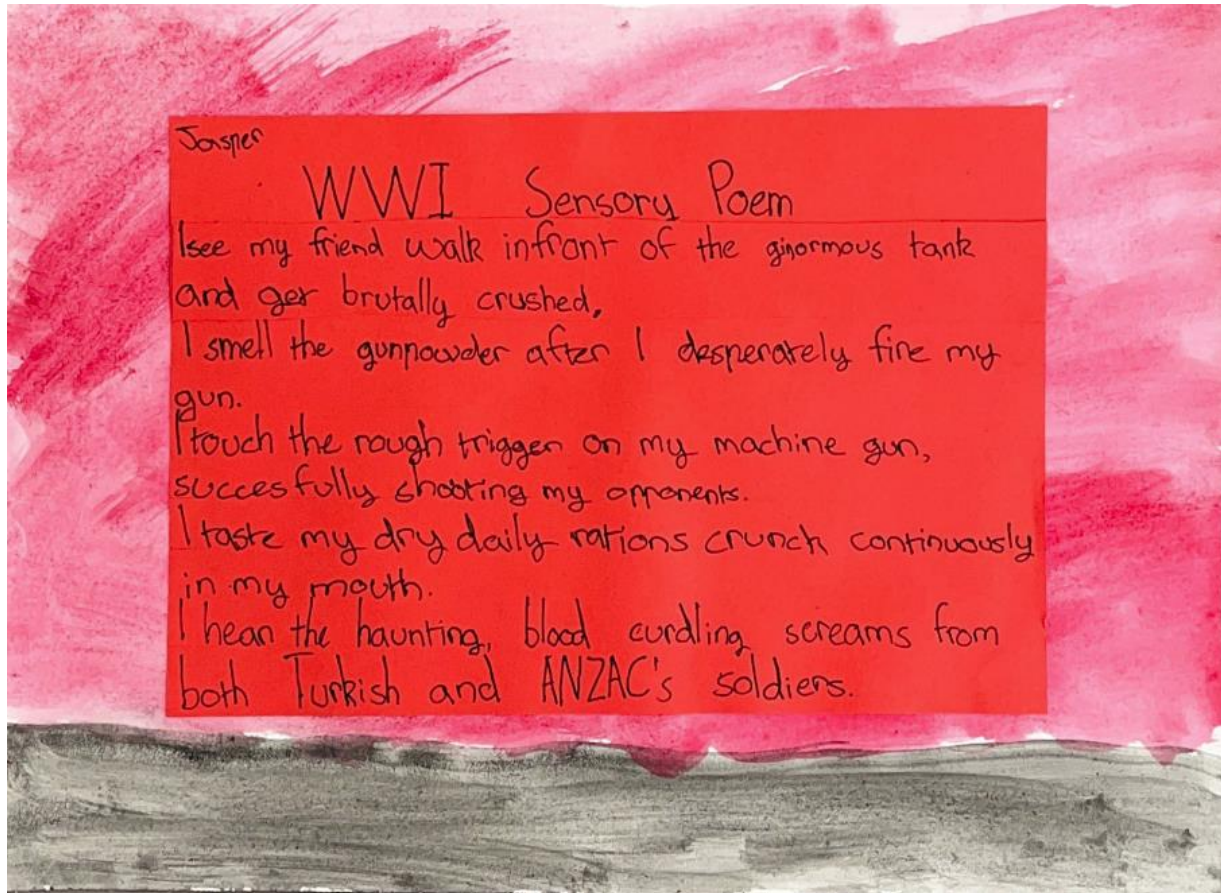 Jasper
WWI Sensory Poem
I see my friend walk infront of the ginormous tank
and get brutally crushed,
I smell the gunpowder after I desperately fire my
gun.
I touch the rough trigger on my machine gun,
succesfully shooting my opponents.
I taste my dry daily rations crunch continuously
in my mouth.
I hear the haunting, blood curdling screams from
both Turkish and ANZAC's soldiers.